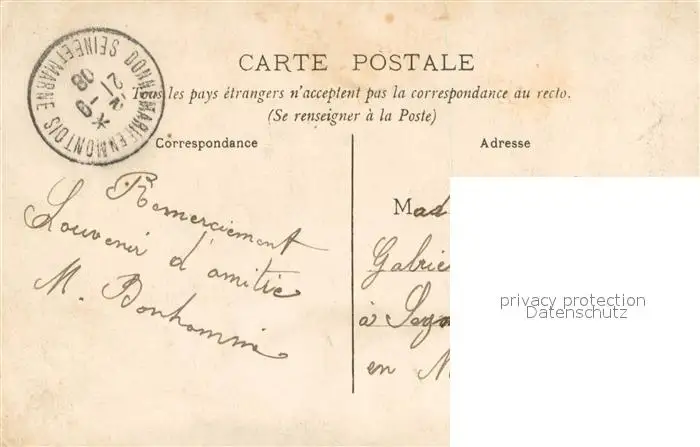 CARTE POSTALE
Tous les pays étrangers n'acceptent pas la correspondance au recto.
(Se renseigner à la Poste)
Correspondance
Adresse
DONNEMARIE EN MONTOIS
SEINE ET MARNE
21
08
Remerciement
Souvenir d'amitié
M. Bonhomme
Mad
Gabrie
à
en M
privacy protection
Datenschutz